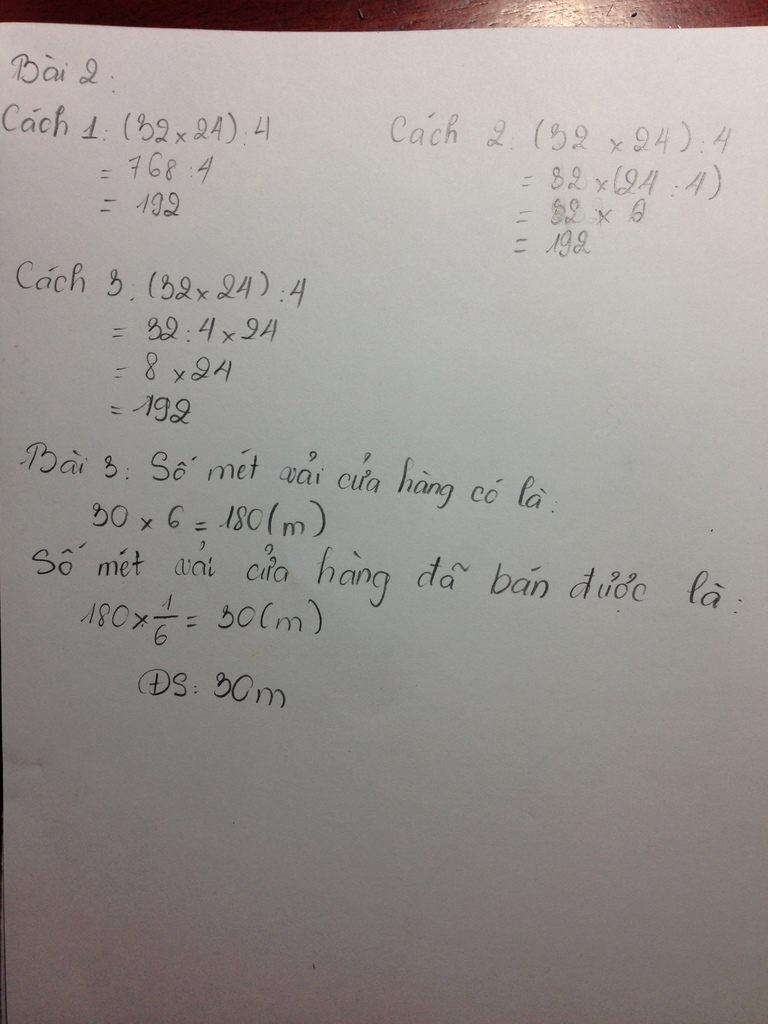 Bài 2:
Cách 1: (32 x 24) : 4
= 768 : 4
= 192
Cách 2: (32 x 24) : 4
= 32 x (24 : 4)
= 32 x 6
= 192
Cách 3: (32 x 24) : 4
= 32 : 4 x 24
= 8 x 24
= 192
Bài 3: Số mét vải cửa hàng có là:
30 x 6 = 180(m)
Số mét vải cửa hàng đã bán được là:
180 x 1/6 = 30(m)
ĐS: 30m